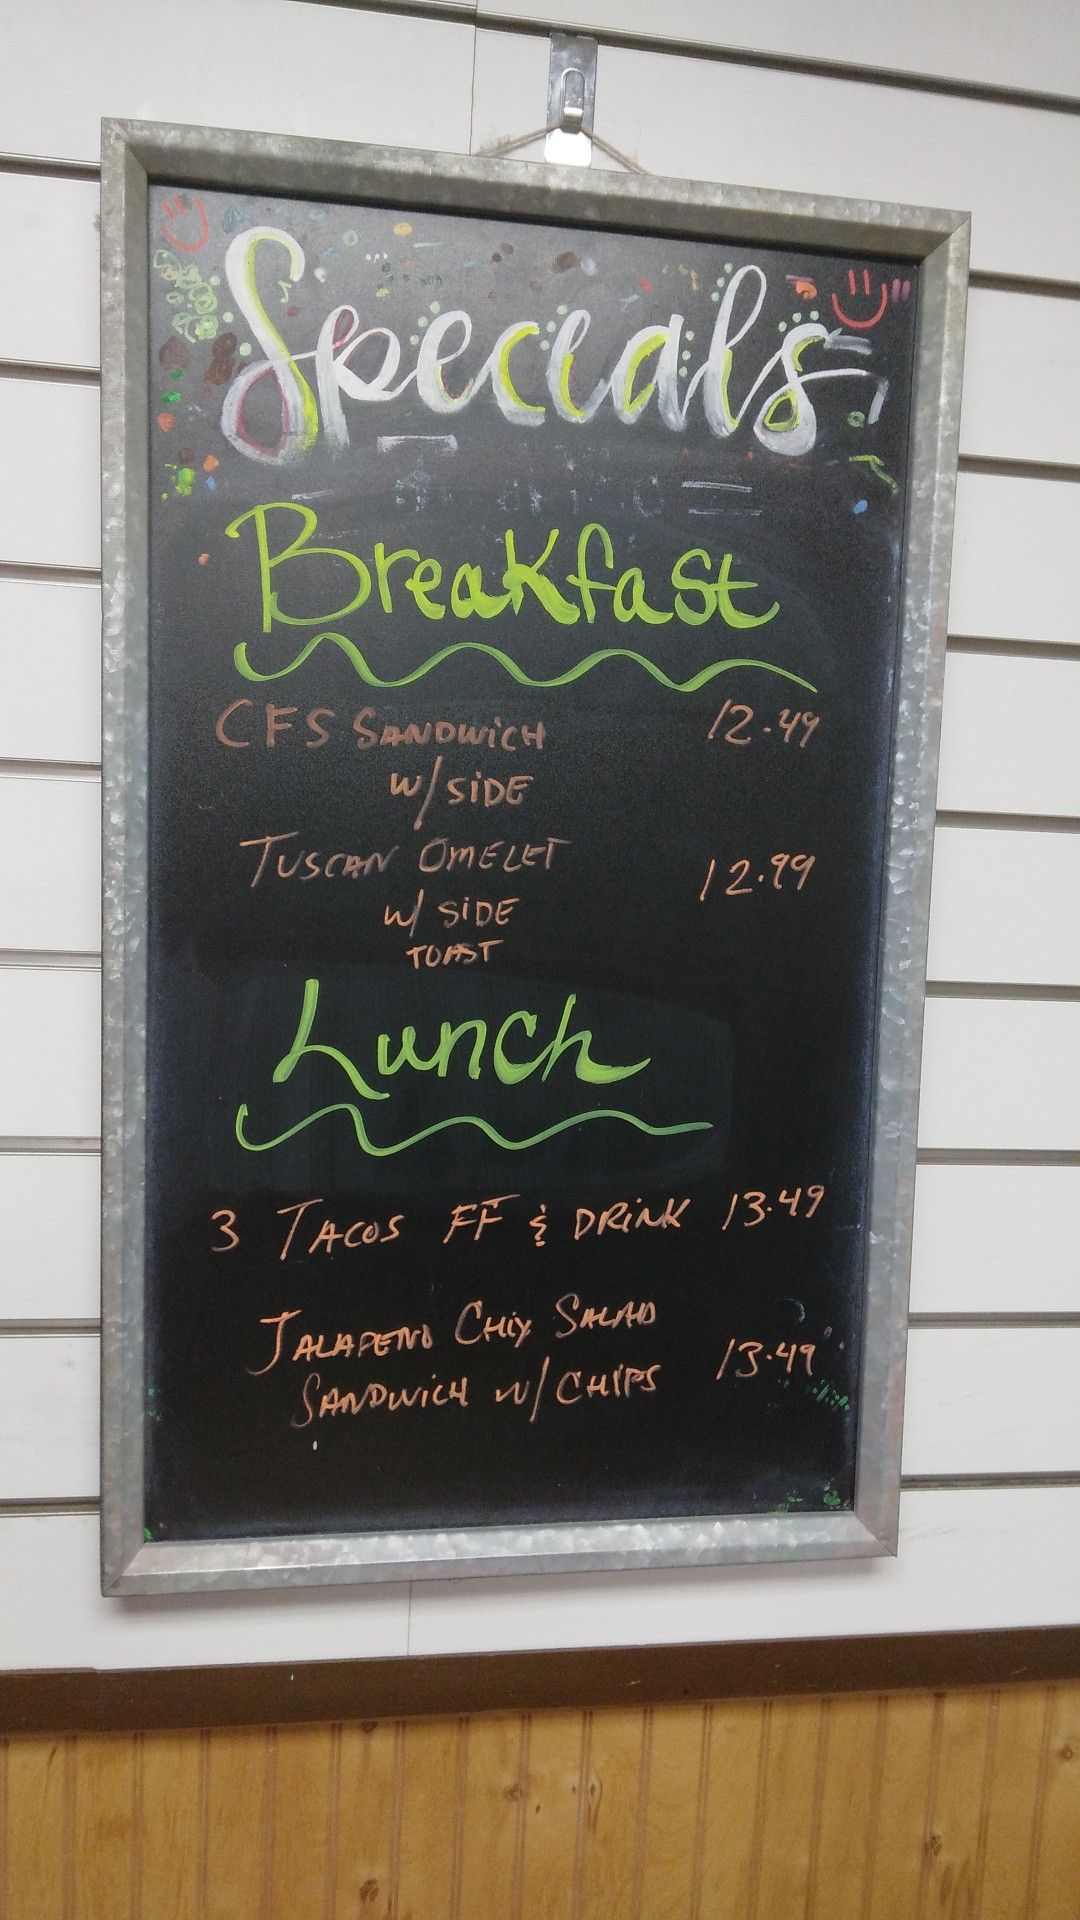 Specials
Breakfast
CFS SANDWiCH 12.49
W/ SiDE
TUSCAN OMELET 12.99
W/ SiDE
TOAST
Lunch
3 TACOS FF & DRiNK 13.49
JALAPENO CHIX SALAD
SANDWiCH W/ CHIPS 13.49